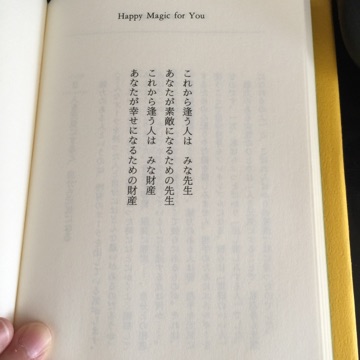 Happy Magic for You
これから逢う人は　みな先生
あなたが素敵になるための先生
これから逢う人は　みな財産
あなたが幸せになるための財産